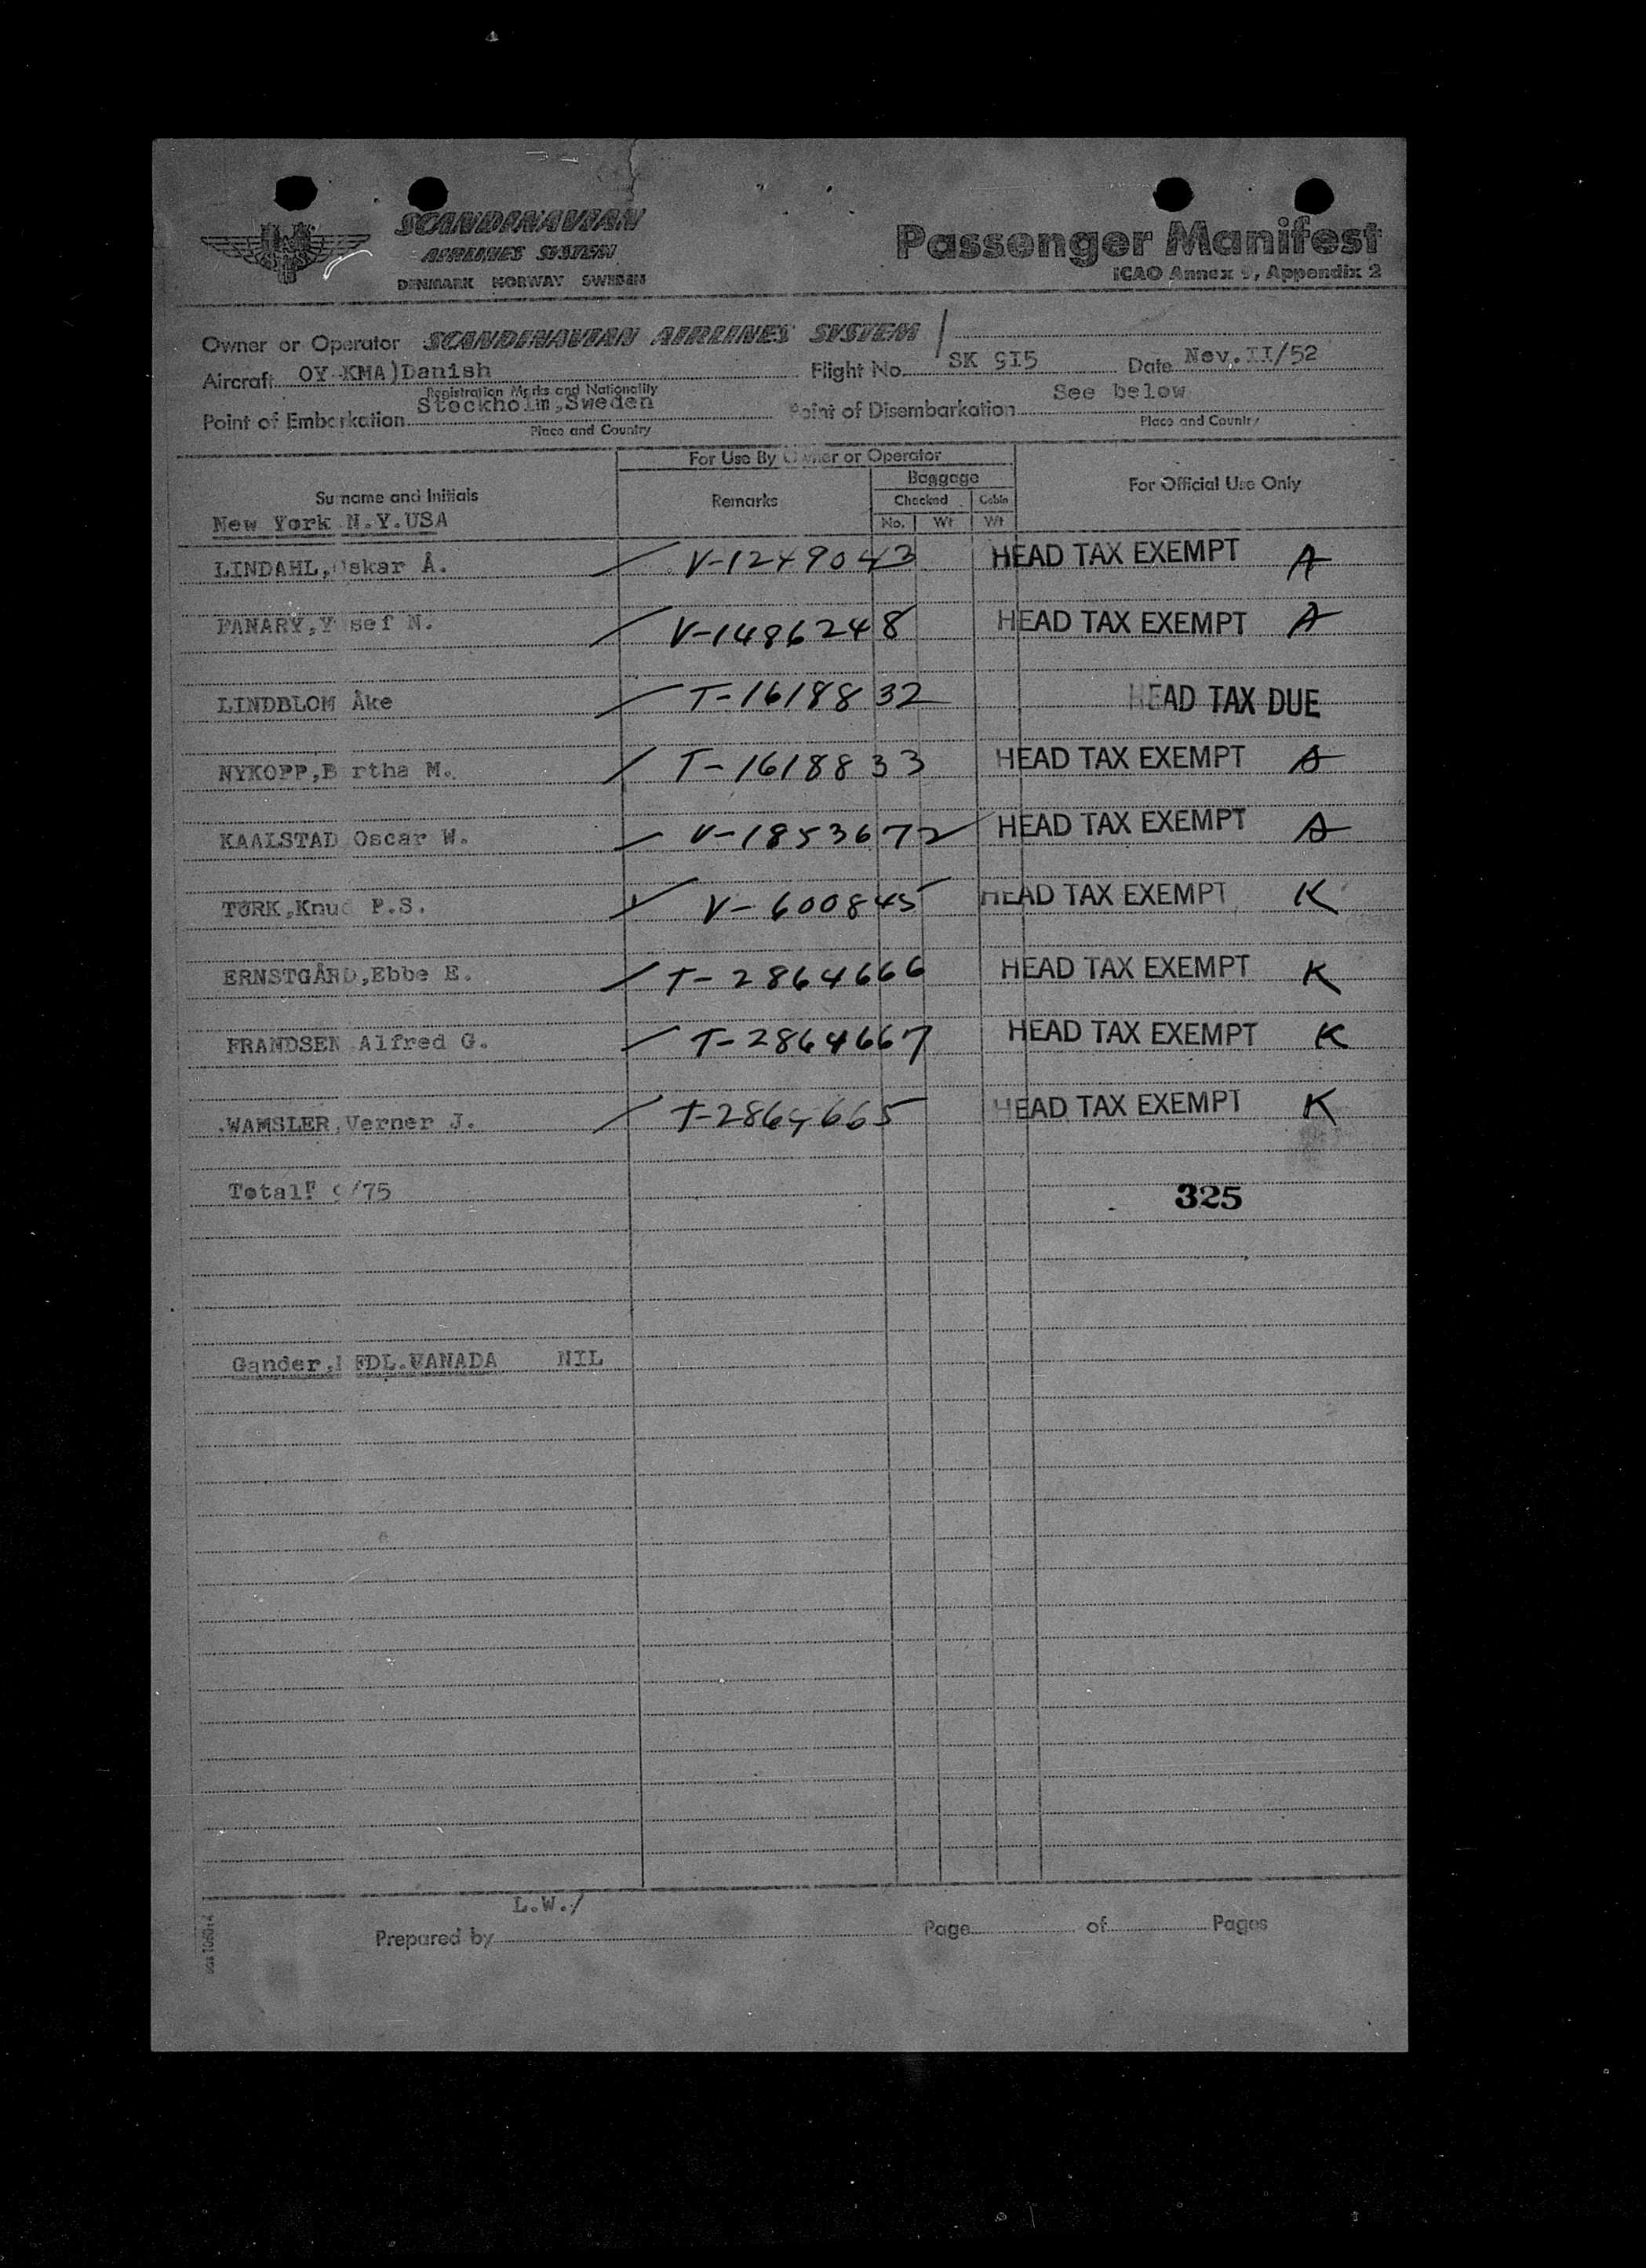 SCANDINAVIAN
AIRLINES SYSTEM
DENMARK NORWAY SWEDEN
Passenger Manifest
ICAO Annex 9, Appendix 2
Owner or Operator SCANDINAVIAN AIRLINES SYSTEM
Aircraft OY-KMA)Danish Flight No. SK 9I5 Date Nov.II/52
Registration Marks and Nationality
Point of Embarkation Stockholm,Sweden Point of Disembarkation See below
Place and Country Place and Country
For Use By Owner or Operator
Surname and Initials Remarks Baggage For Official Use Only
Checked Cabin
No. Wt Wt
New York N.Y.USA
LINDAHL, skar Å. V-1249043 HEAD TAX EXEMPT A
FANARY,Y sef N. V-1486248 HEAD TAX EXEMPT A
LINDBLOM Åke T-1618832 HEAD TAX DUE
NYKOPP,B rtha M. T-1618833 HEAD TAX EXEMPT A
KAALSTAD Oscar W. V-1853672 HEAD TAX EXEMPT A
TØRK,Knud P.S. V-600845 HEAD TAX EXEMPT K
ERNSTGÅRD,Ebbe E. T-2864666 HEAD TAX EXEMPT K
FRANDSEN Alfred G. T-2864667 HEAD TAX EXEMPT K
WAMSLER,Verner J. T-2864665 HEAD TAX EXEMPT K
Total: 9/75 325
Gander, FDL.VANADA NIL
L.W./
Prepared by Page of Pages